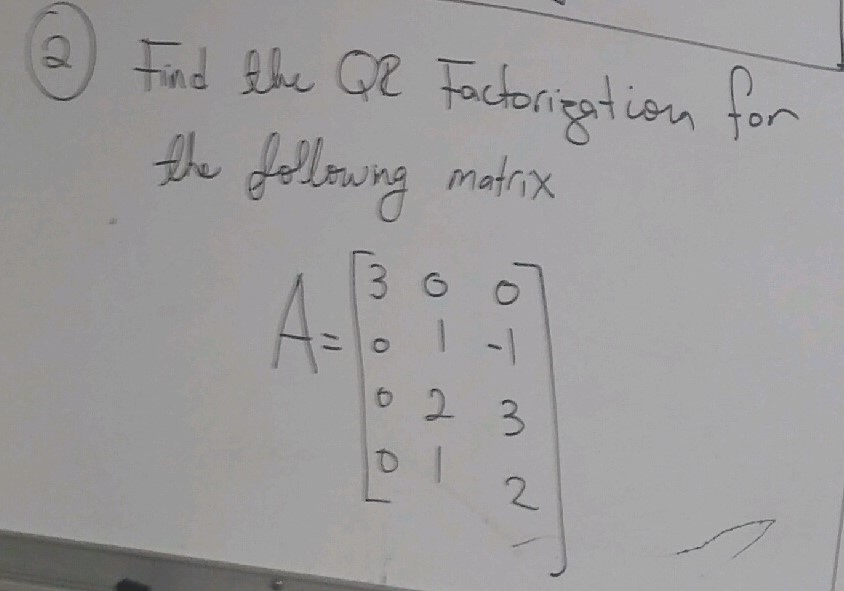 ② Find the QR Factorization for
the following matrix
A= [3 0 0
0 1 -1
0 2 3
0 1 2]